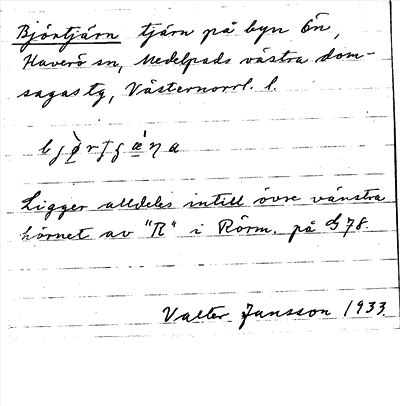 Björntjärn tjärn på byn Ön,
Haverö sn, Medelpads västra dom-
sagas tg, Västernorrl. l.
Ligger alldeles intill övre vänstra
hörnet av "R" i Rörm. på G 78.
Valter Jansson 1933.